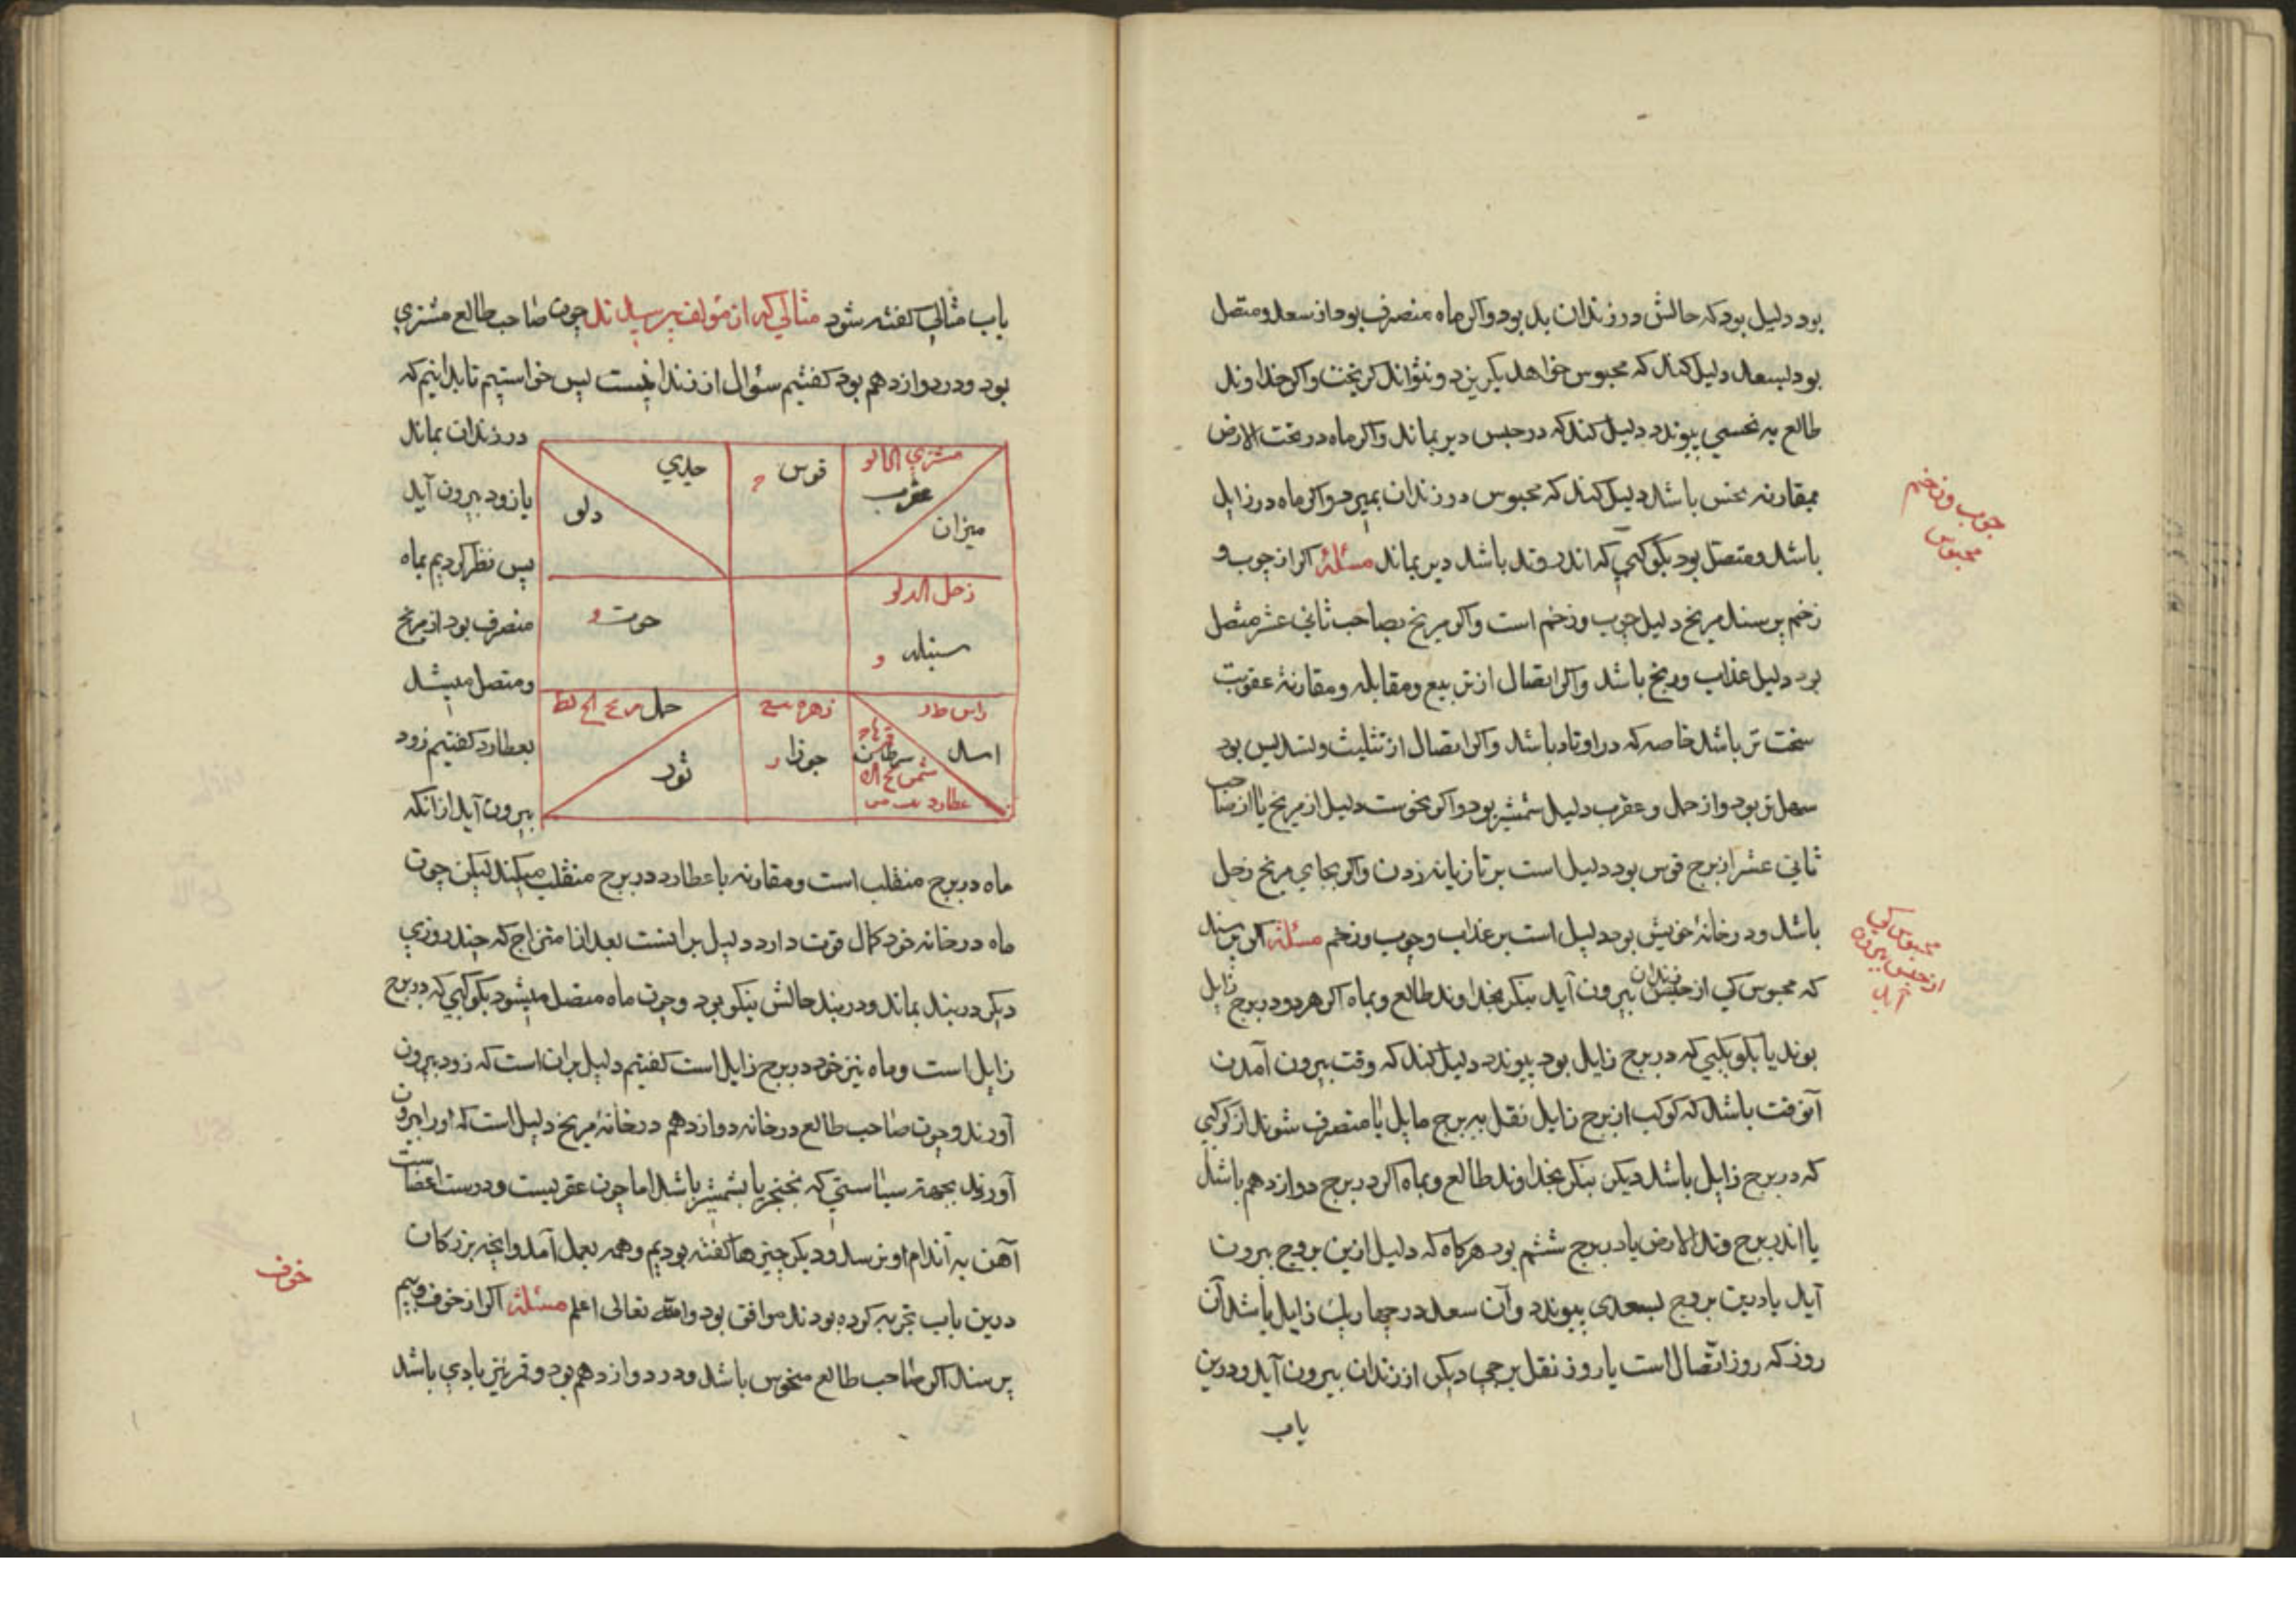 بود دلیل بود که حالش در زندان بد بود واکر ماه منصرف بود از سعد ومتصل
بود بسعد دلیل کند که محبوس خواهد بکریزد ونتواند کریخت واکر خداوند
طالع به نحسی پیوندد دلیل کند که در حبس دیر بماند واکر ماه در تحت الارض
بمقارنه نحس باشد دلیل کند که محبوس در زندان بمیرد واکر ماه در زایل
باشد ومتصل بود بکوکبی که اندر وتد باشد دیر بماند مسئلة اکر از چوب و
زخم پرسند مریخ دلیل چوب وزخم است واکر مریخ بصاحب ثانی عشر متصل
بود دلیل عذاب ورنج باشد واکر اتصال از تربیع ومقابله ومقارنة عقوبت
سخت تر باشد خاصه که در اوتاد باشد واکر اتصال از تثلیث وتسدیس بود
سهل تر بود واز حمل وعقرب دلیل شمشیر بود واکر نحوست دلیل از مریخ یا از صاحب
ثانی عشر از برج قوس بود دلیل است بر تازیانه زدن واکر بجای مریخ زحل
باشد ودر خانهٔ خویش بود دلیل است بر عذاب وچوب وزخم مسئلة اکر پرسند
که محبوس کی از حبس زندان بیرون آید بنکر بخداوند طالع وبماه اکر هر دو در برج زایل
بوند یا بکوکبی که در برج زایل بود پیوندد دلیل کند که وقت بیرون آمدن
آنوقت باشد که کوکب از برج زایل نقل به برج مایل یا منصرف شوند از کوکبی
که در برج زایل باشد دیکر بنکر بخداوند طالع وبماه اکر در برج دوازدهم باشد
یا اندر برج وتد الارض یا در برج ششم بود هرکاه که دلیل ازین بروج بیرون
آید یا درین بروج بسعدی پیوندد وآن سعد در چهار یک زایل باشد آن
روز که روز اتصال است یا روز نقل برجی دیکر از زندان بیرون آید ودرین
باب
چوب وزخم
محبوس
محبوس کی
از حبس بیرون
آید
باب مثالی کفته شود مثالی که از مؤلف پرسیدند چون صاحب طالع مشتری
بود ودر دوازدهم بود کفتیم سؤال از زندانیست پس خواستیم تا بدانیم که
در زندان بماند
یا زود بیرون آید
پس نظر کردیم بماه
منصرف بود از مریخ
ومتصل میشد
بعطارد کفتیم زود
بیرون آید از انکه
مشتری
عقرب
میزان
قوس
جدی
دلو
زحل
سنبله
حوت
راس
اسد
سرطان
شمس
عطارد
زهره
جوزا
حمل مریخ
ثور
ماه در برج منقلب است ومقارنه با عطارد در برج منقلب میکند لیکن چون
ماه در خانه خود کمال قوت دارد دلیل برانست بعد از امتزاج که چند روزی
دیکر در بند بماند ودر بند حالش نیکو بود وچون ماه متصل میشود بکوکبی که در برج
زایل است وماه نیز خود در برج زایل است کفتیم دلیل بران است که زود بیرون
آورند وچون صاحب طالع در خانه دوازدهم در خانهٔ مریخ دلیل است که اورا بیرون
آورند بجهة سیاستی که بخنجر یا بشمشیر باشد اما چون عقربست ودرست اعضاست
آهن به اندام او نرسد ودیکر چیزها کفته بودیم وهمه بعمل آمد وآنچه بزرکان
درین باب تجربه کرده بودند موافق بود والله تعالی اعلم مسئلة اکر از خوف وبیم
پرسند اکر صاحب طالع منحوس باشد ودر دوازدهم بود وقمر نیز بادی باشد
خوف